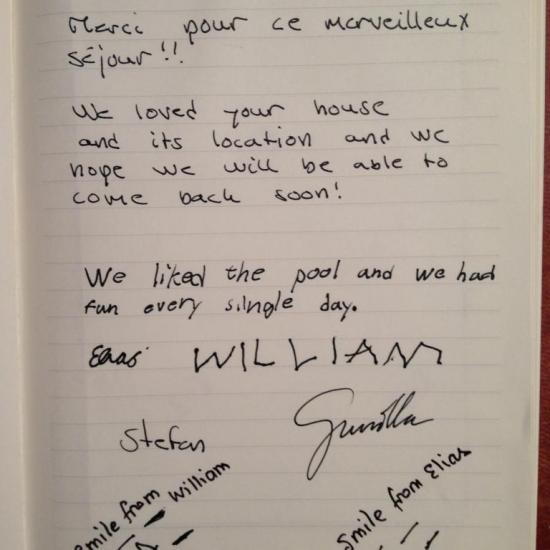 Merci pour ce merveilleux
séjour!!
We loved your house
and its location and we
hope we will be able to
come back soon!
We liked the pool and we had
fun every silngle day.
Elias WILLIAM
Stefan Gunilla
smile from William
Smile from Elias